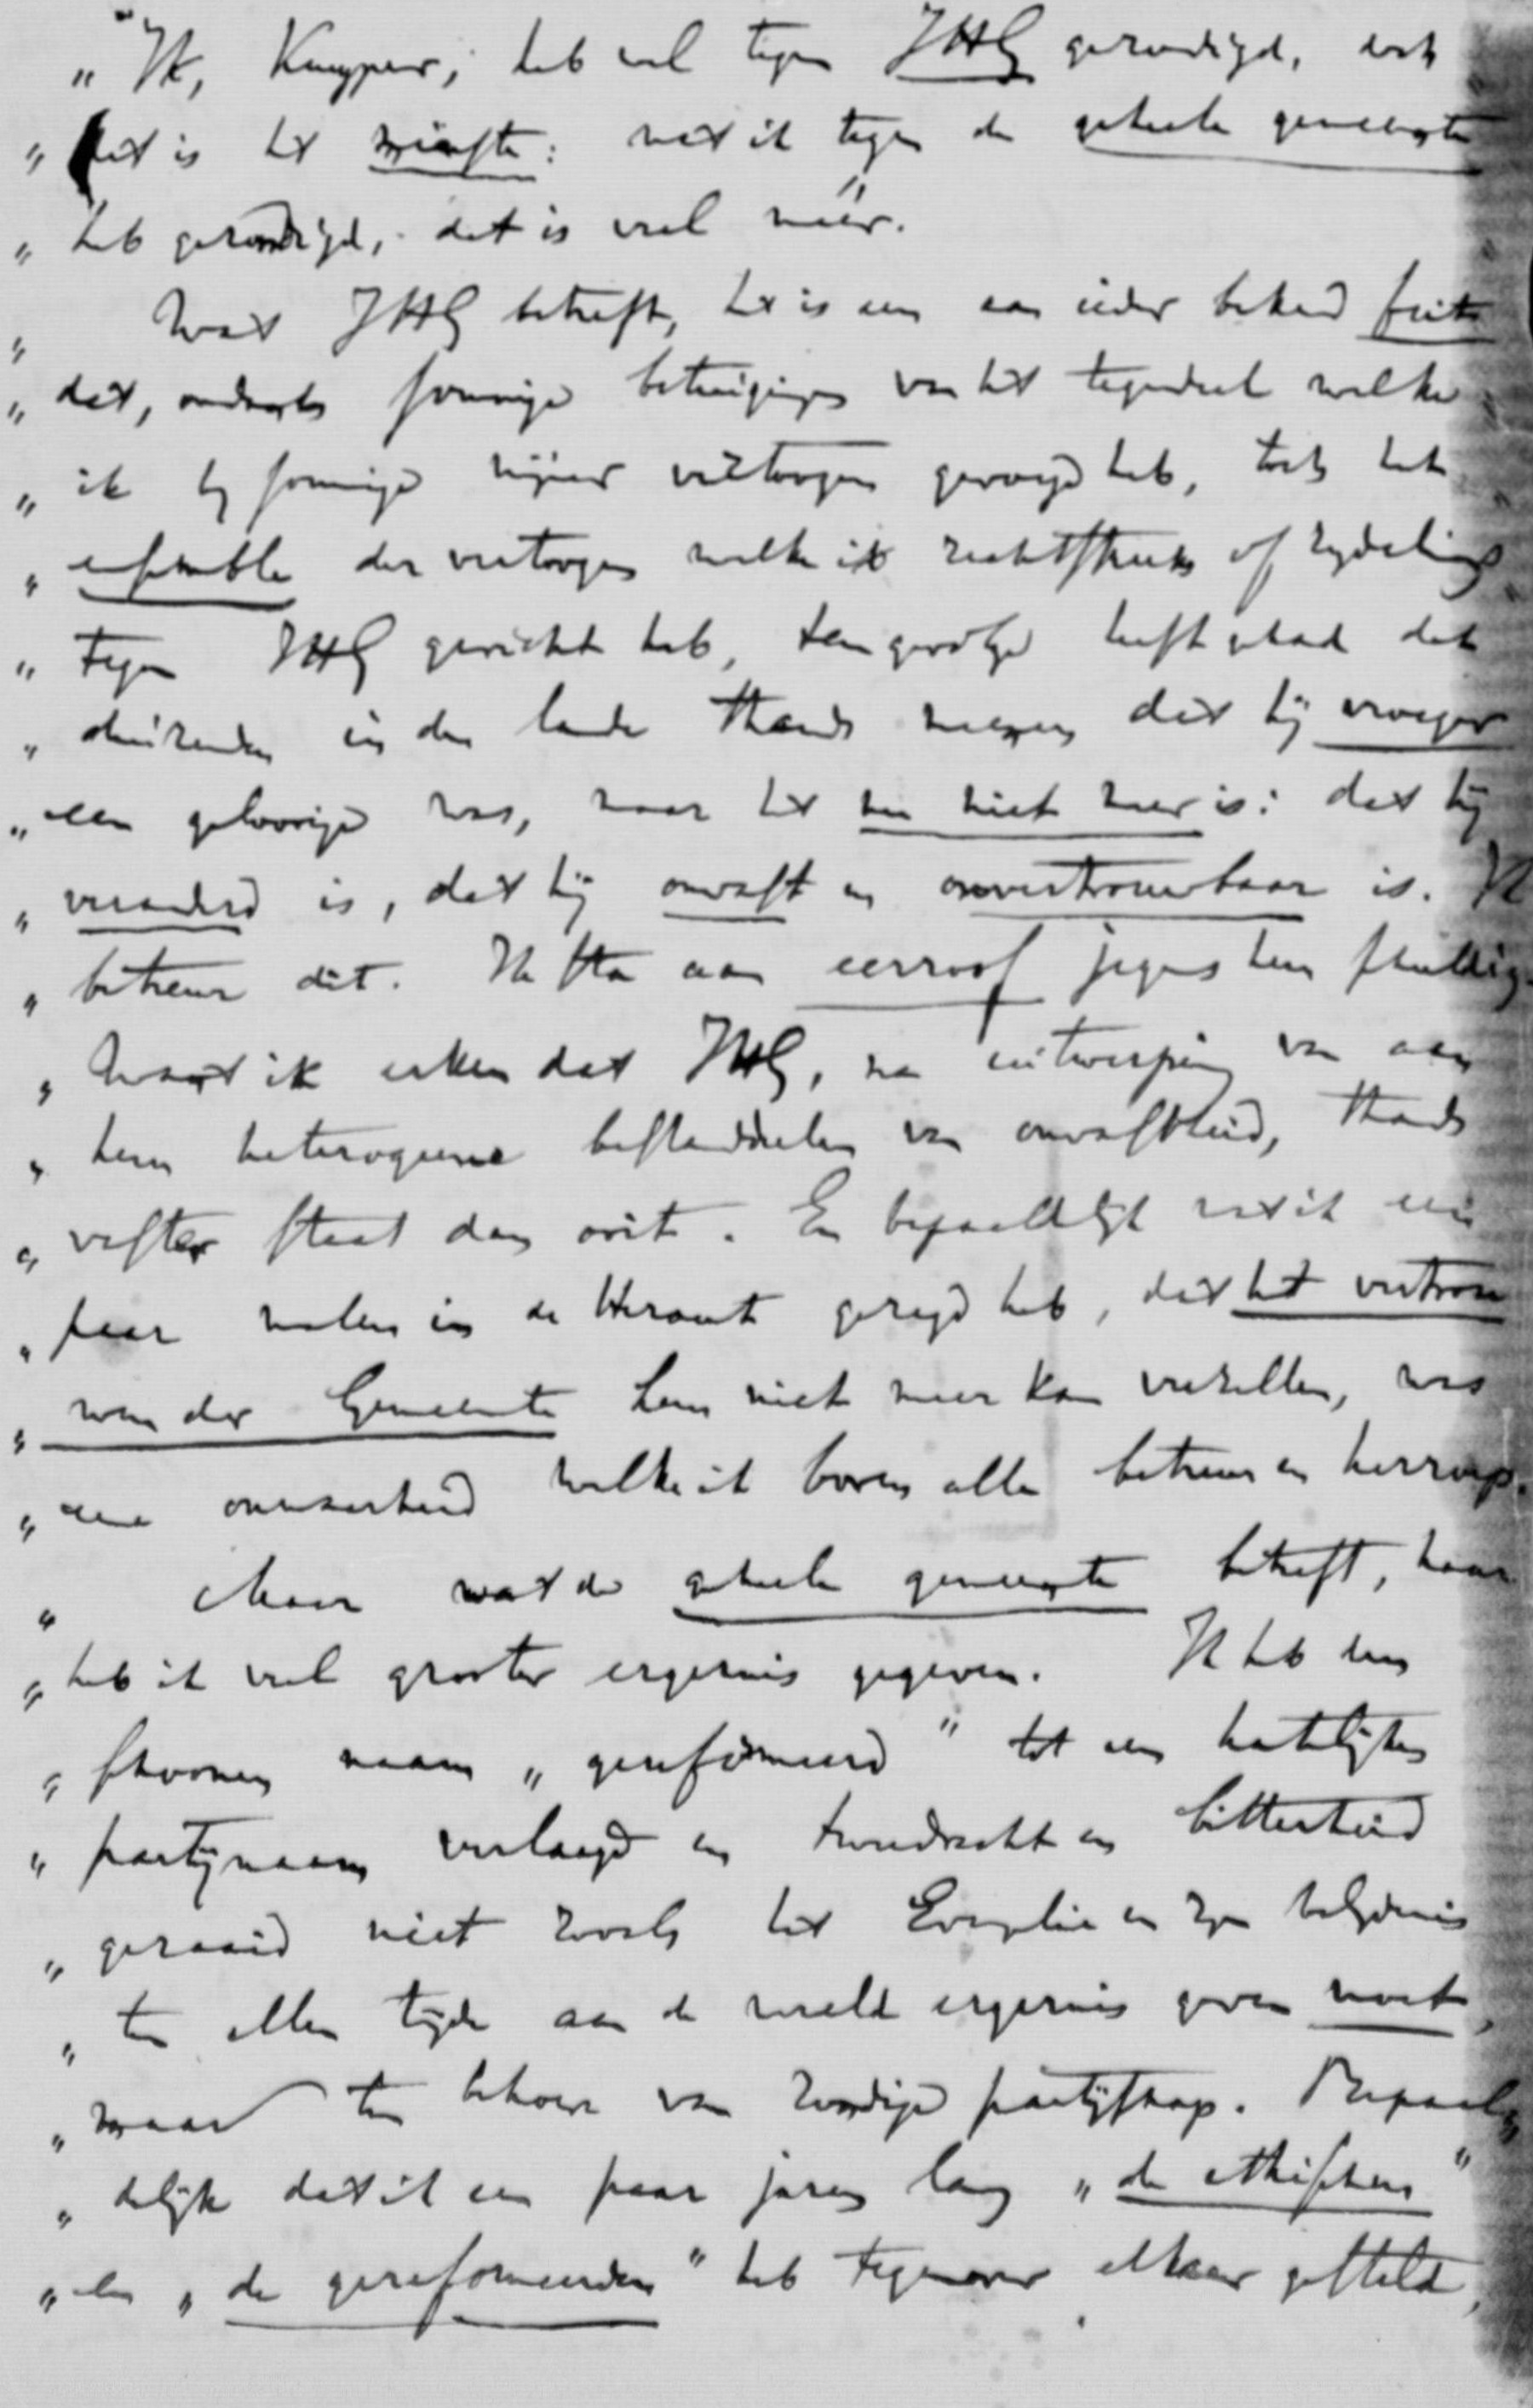 „Ik, Kuyper, heb wel tegen JHG gezondigd, doch
„dit is het minste: wat ik tegen de geheele gemeente
„heb gezondigd, dat is veel méér.
„Wat JHG betreft, het is een aan ieder bekend feit
„dat, ondanks sommige betuigingen van het tegendeel welke
„ik by sommige mijner vertoogen gevoegd heb, toch het
„ensemble der vertoogen welke ik rechtstreeks of zydelings
„tegen JHG gericht heb, ten gevolge heeft gehad dat
„duizenden in den lande thands meenen dat hij vroeger
„een geloovige was, maar het nu niet meer is: dat hij
„veranderd is, dat hij onvast en onvertrouwbaar is. Ik
„betreur dit. Ik sta aan eerroof jegens hem schuldig.
„Want ik erken dat JHG, na uitwerping van aan
„hem heterogeene bestanddeelen van onvastheid, thands
„vaster staat dan ooit. En bepaaldelijk wat ik een
„paar malen in de Heraut gezegd heb, dat het vertrouwen
„van der Gemeente hem niet meer kan verzellen, was
„eene onwaarheid welke ik boven alles betreur en herroep.
„Maar wat de geheele gemeente betreft, haar
„heb ik veel grooter ergernis gegeven. Ik heb den
„schoonen naam „gereformeerd" tot een hatelijken
„partijnaam verlaagd en tweedracht en bitterheid
„gezaaid niet zooals het Evangelie en zyn belydenis
„ten allen tijde aan de wereld ergernis geven moet,
„maar ten behoeve van zondige partijschap. Bepaal„
„delijk dat ik een paar jaren lang „de ethischen"
„en „de gereformeerden" heb tegenover elkaar gesteld,